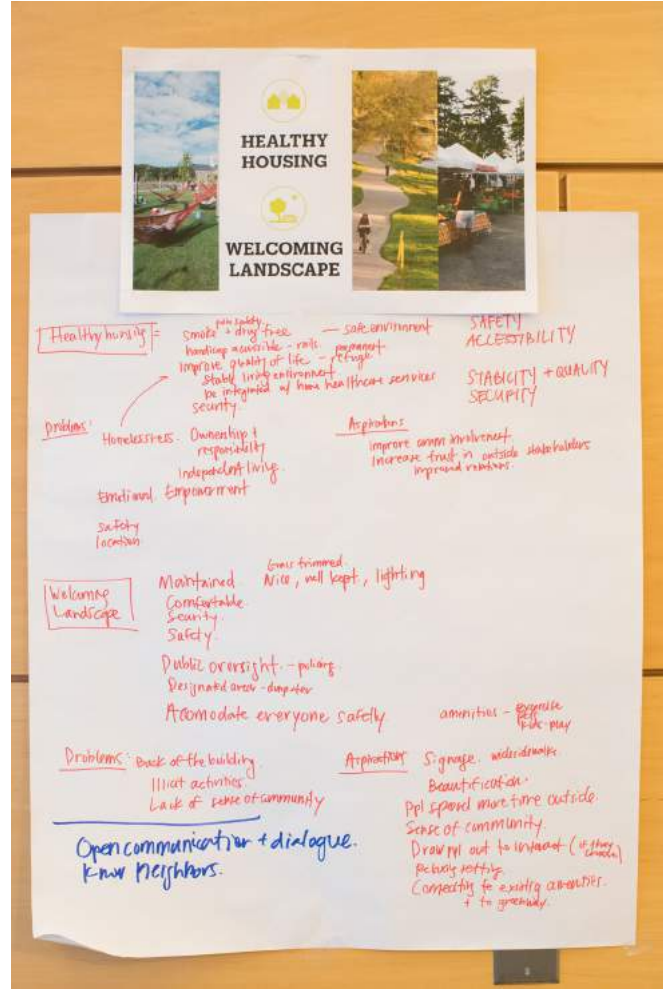 HEALTHY
HOUSING
WELCOMING
LANDSCAPE
Healthy housing =
smoke + drug free — safe environment
handicap accessible - rails. permanent
Improve quality of life - refuge
Stable living environment
be integrated w/ home healthcare services
security.
SAFETY
ACCESSIBILITY
STABILITY + QUALITY
SECURITY
Problems:
Homelessness. Ownership +
responsibility
Independent living.
Emotional Empowerment
safety
location
Aspirations
Improve comm involvement.
Increase trust in outside stakeholders
improved relations.
Welcoming
Landscape
Maintained
Grass trimmed.
Nice, well kept, lighting
Comfortable
Security.
Safety.
Public oversight. - policing.
Designated areas - dumpster
Acomodate everyone safely
amenities - exercise
pets
kids-play
Problems: Back of the building
Illicit activities
Lack of sense of community
Aspirations
Signage. wide sidewalks
Beautification.
Ppl spend more time outside.
Sense of community.
Draw ppl out to interact (if they choose)
Relaxing setting.
Connecting to existing amenities.
+ to greenway.
Open communication + dialogue.
Know neighbors.